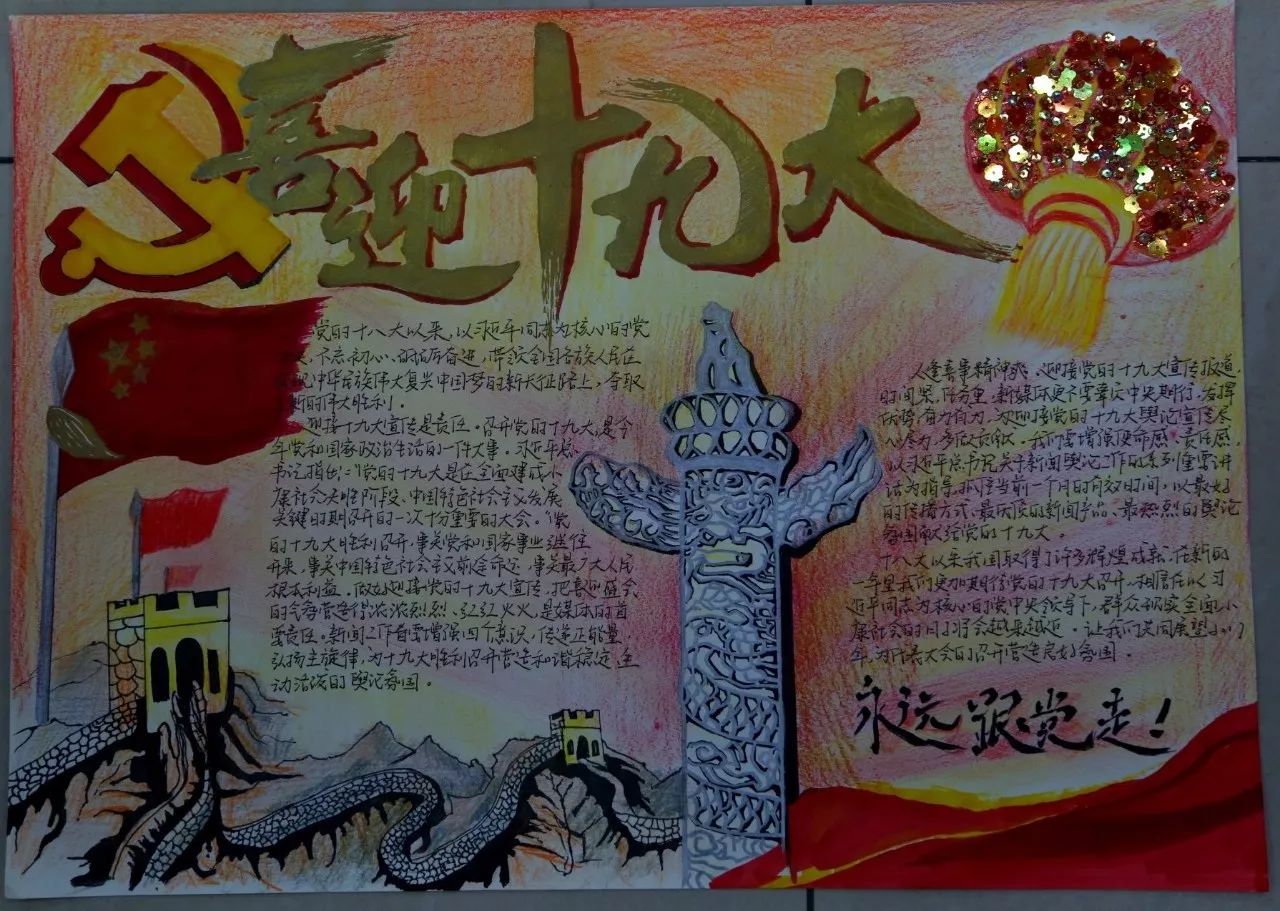 喜迎十九大
党的十八大以来，以习近平同志为核心的党
不忘初心、砥砺奋进，带领全国各族人民在
实现中华民族伟大复兴中国梦的新长征路上，夺取
新的伟大胜利。
迎接十九大宣传是责任。召开党的十九大，是今
年党和国家政治生活的一件大事。习近平总
书记指出："党的十九大是在全面建成小
康社会决胜阶段、中国特色社会主义发展
关键时期召开的一次十分重要的大会。"党
的十九大胜利召开，事关党和国家事业继往
开来，事关中国特色社会主义前途命运，事关最广大人民
根本利益。做好迎接党的十九大宣传，把喜迎盛会
的氛围营造得浓浓烈烈、红红火火，是媒体的首
要责任。新闻工作者要增强四个意识，传递正能量
弘扬主旋律，为十九大胜利召开营造和谐稳定、生
动活泼的舆论氛围。
人逢喜事精神爽。迎接党的十九大宣传报道，
时间紧、任务重，新媒体更不要辜负中央期待，发挥
优势，奋力作为，为迎接党的十九大舆论宣传尽
心尽力，多做贡献。我们要增强使命感、责任感，
以习近平总书记关于新闻舆论工作的系列重要讲
话为指导，抓住当前一个月的有效时间，以最好
的传播方式、最优质的新闻产品、最热烈的舆论
氛围献给党的十九大。
十八大以来我国取得了许多辉煌成就，在新的
一年里我们更加期待党的十九大召开，相信在以习
近平同志为核心的党中央领导下，群众切实全面小
康社会的日子将会越来越近。让我们共同展望
年，为代表大会的召开营造良好氛围。
永远跟党走！